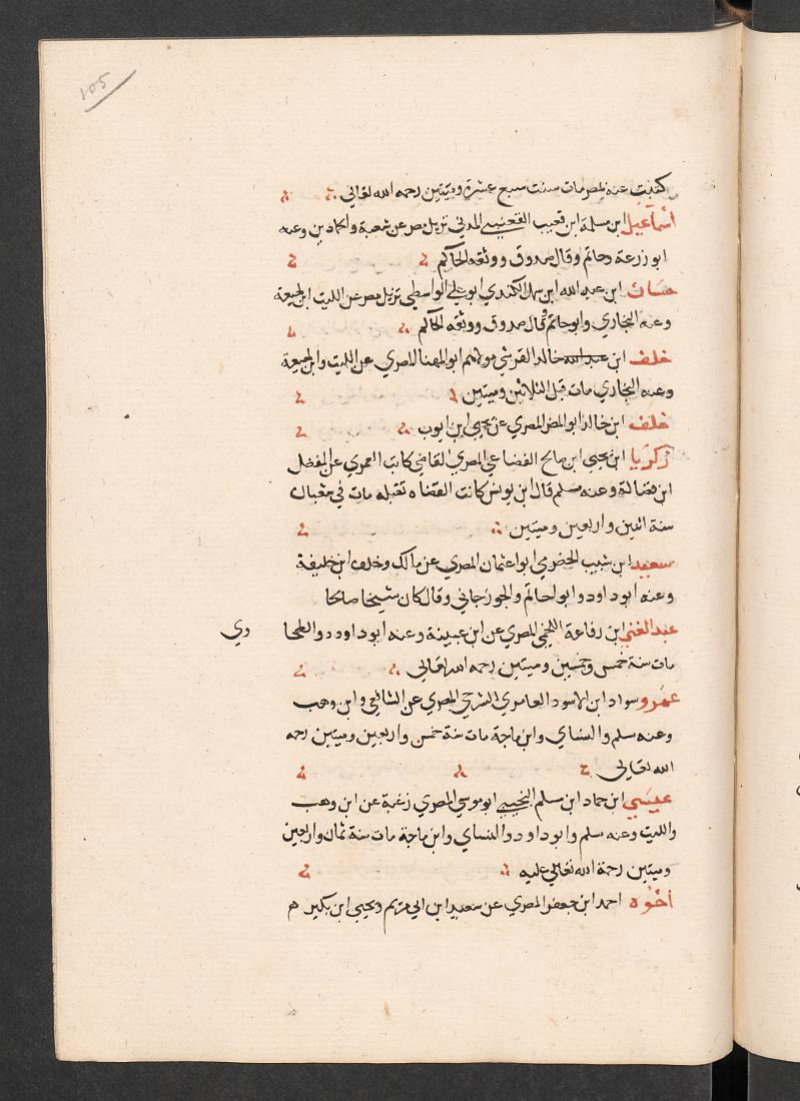 105
كتبت عنه بمصر مات سنت سبع عشرة وميتين رحمه الله تعالى
اسماعيل ابن مسلمة ابن قعيب القعنبي المدني نزيل مصر عن شعبة والحمادين وعنه
ابو زرعة وحاتم وقال صدوق ووثقه الحاكم
حسان ابن عبد الله ابن سهل الكندي ابو علي الواسطي نزيل مصر عن الليث ابن لهيعة
وعنه البخاري وابو حاتم وقال صدوق ووثقه الحاكم
خلف ابن عبد الله خالد القرشي مولاهم ابو المهنا المصري عن الليث وابن لهيعة
وعنه البخاري مات قبل الثلاثين وميتين
خلف ابن خالد ابو المضا المصري عن يحيى ابن ايوب
زكريا ابن يحيى ابن صالح القضاعي المصري القاضي كاتب العمري عن المفضل
ابن فضالة وعنه مسلم قال ابن يونس كانت القضاه تقبله مات في شعبان
سنة اثنين واربعين وميتين
سعيد ابن شبيب الحضرمي ابو اعثمان المصري عن مالك وخلف ابن خليفة
وعنه ابو داود وابو لحاتم والجوزجاني وقال كان شيخا صالحا
عبد الغني ابن رفاعة اللخمي المصري عن ابن عيينة وعنه ابو داود والطحا وي
مات سنة خمس وخمسين وميتين رحمه الله تعالى
عمرو سواد ابن الاسود العامري السرحي المصري عن الشافعي وابن وهب
وعنه مسلم والنساي وابن ماجة مات سنة خمس واربعين وميتين رحمه
الله تعالى
عيسى ابن حماد ابن مسلم التجيبي ابو موسى المصري زغبة عن ابن وهب
والليث وعنه مسلم وابو داود والنساي وابن ماجة مات سنة ثمان واربعين
وميتين رحمة الله تعالى عليه
اخوه احمد ابن جعفر المصري عن سعيد ابن ابي مريم ويحيى ابن بكير